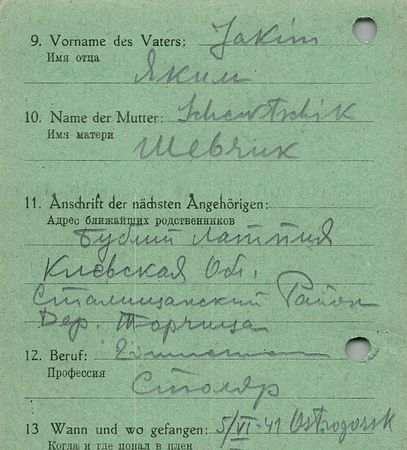 9. Vorname des Vaters: Jakim
Имя отца
Яким
10. Name der Mutter: Schewtschik
Имя матери
Шевчик
11. Anschrift der nächsten Angehörigen:
Адрес ближайших родственников
Бублий
Киевская Обл.
Район
Дер. Торчица
12. Beruf:
Профессия
Столяр
13 Wann und wo gefangen: 5/VI-41 Ostrogorsk
Когда и где попал в плен
VI